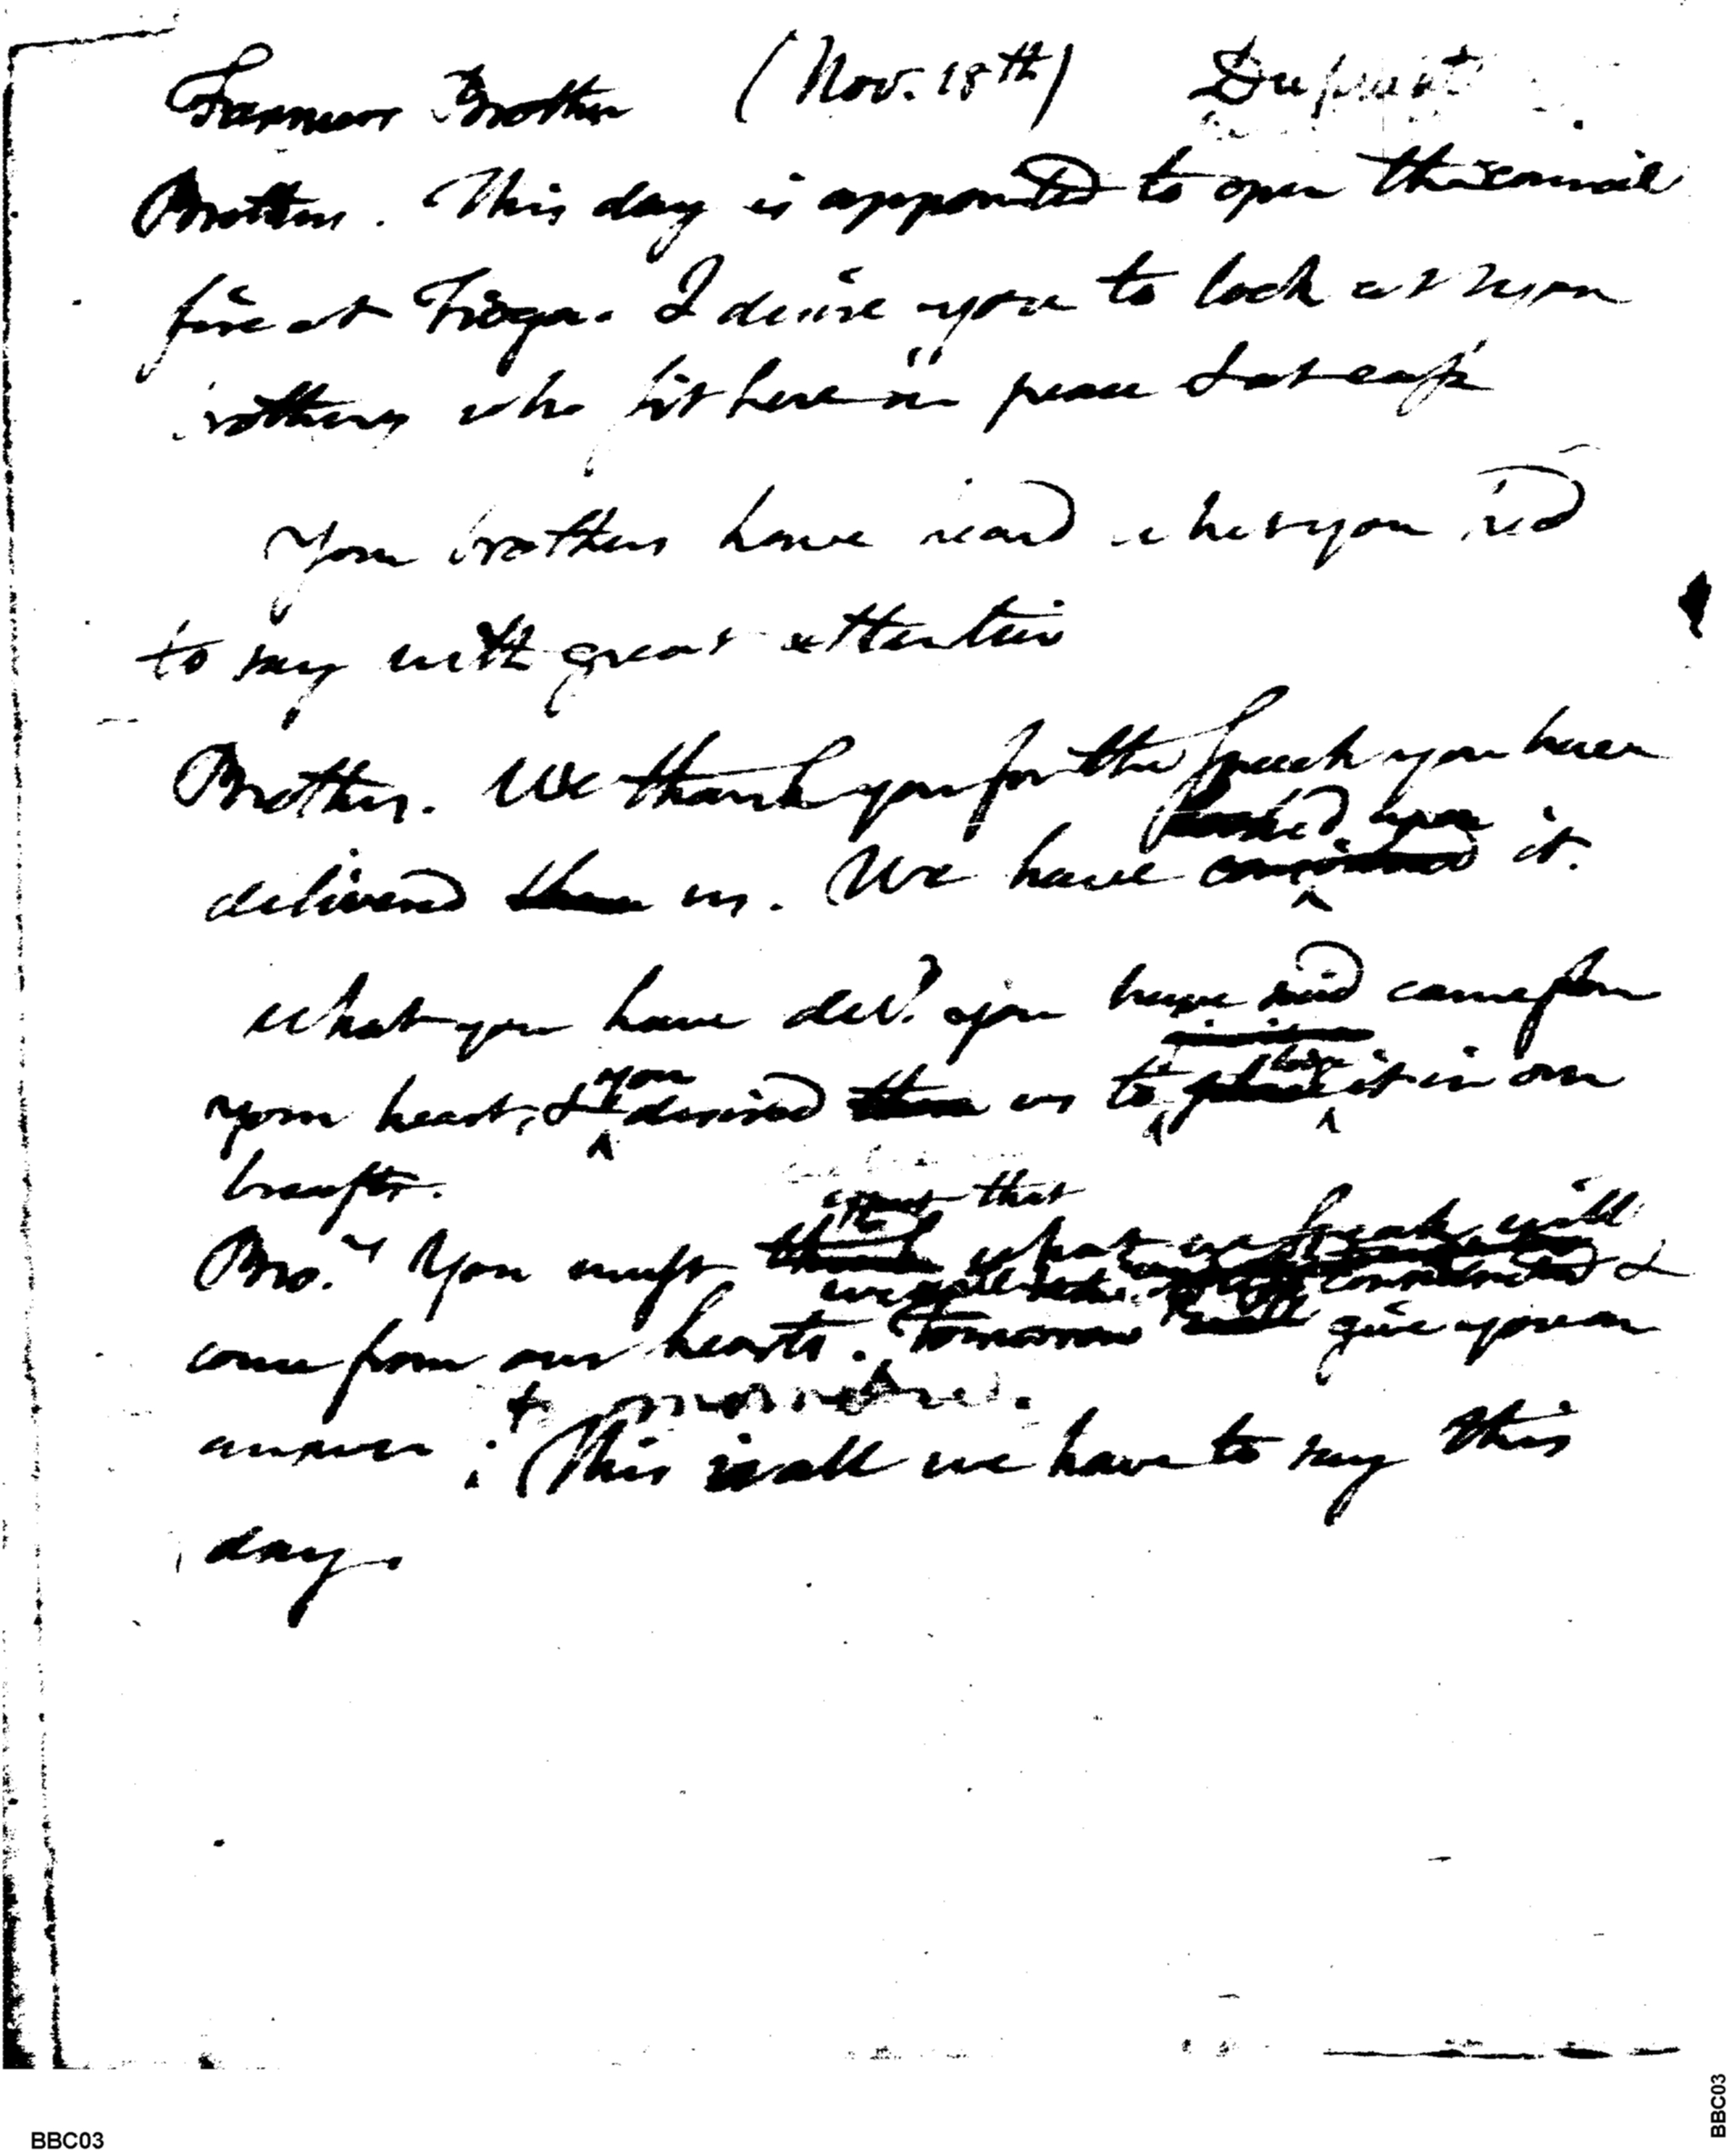 Farmers Brother (Nov. 18th)
Brothers. This day is appointed to open the council
fire at Tioga. I desire you to look at your
brothers who sit here in peace & at ease
You brothers have heard what you had
to say with great attention
Brothers. We thank you for the speech you have
delivered them us. We have it.
what you have deld. you have said came from
your heart, & you desired them us to it in our
breasts.
that
Bro.rs You must think what we speak will
&
come from our hearts. Tomorrow will give you an
to morrow
answer. This is all we have to say this
day.
BBC03
BBC03